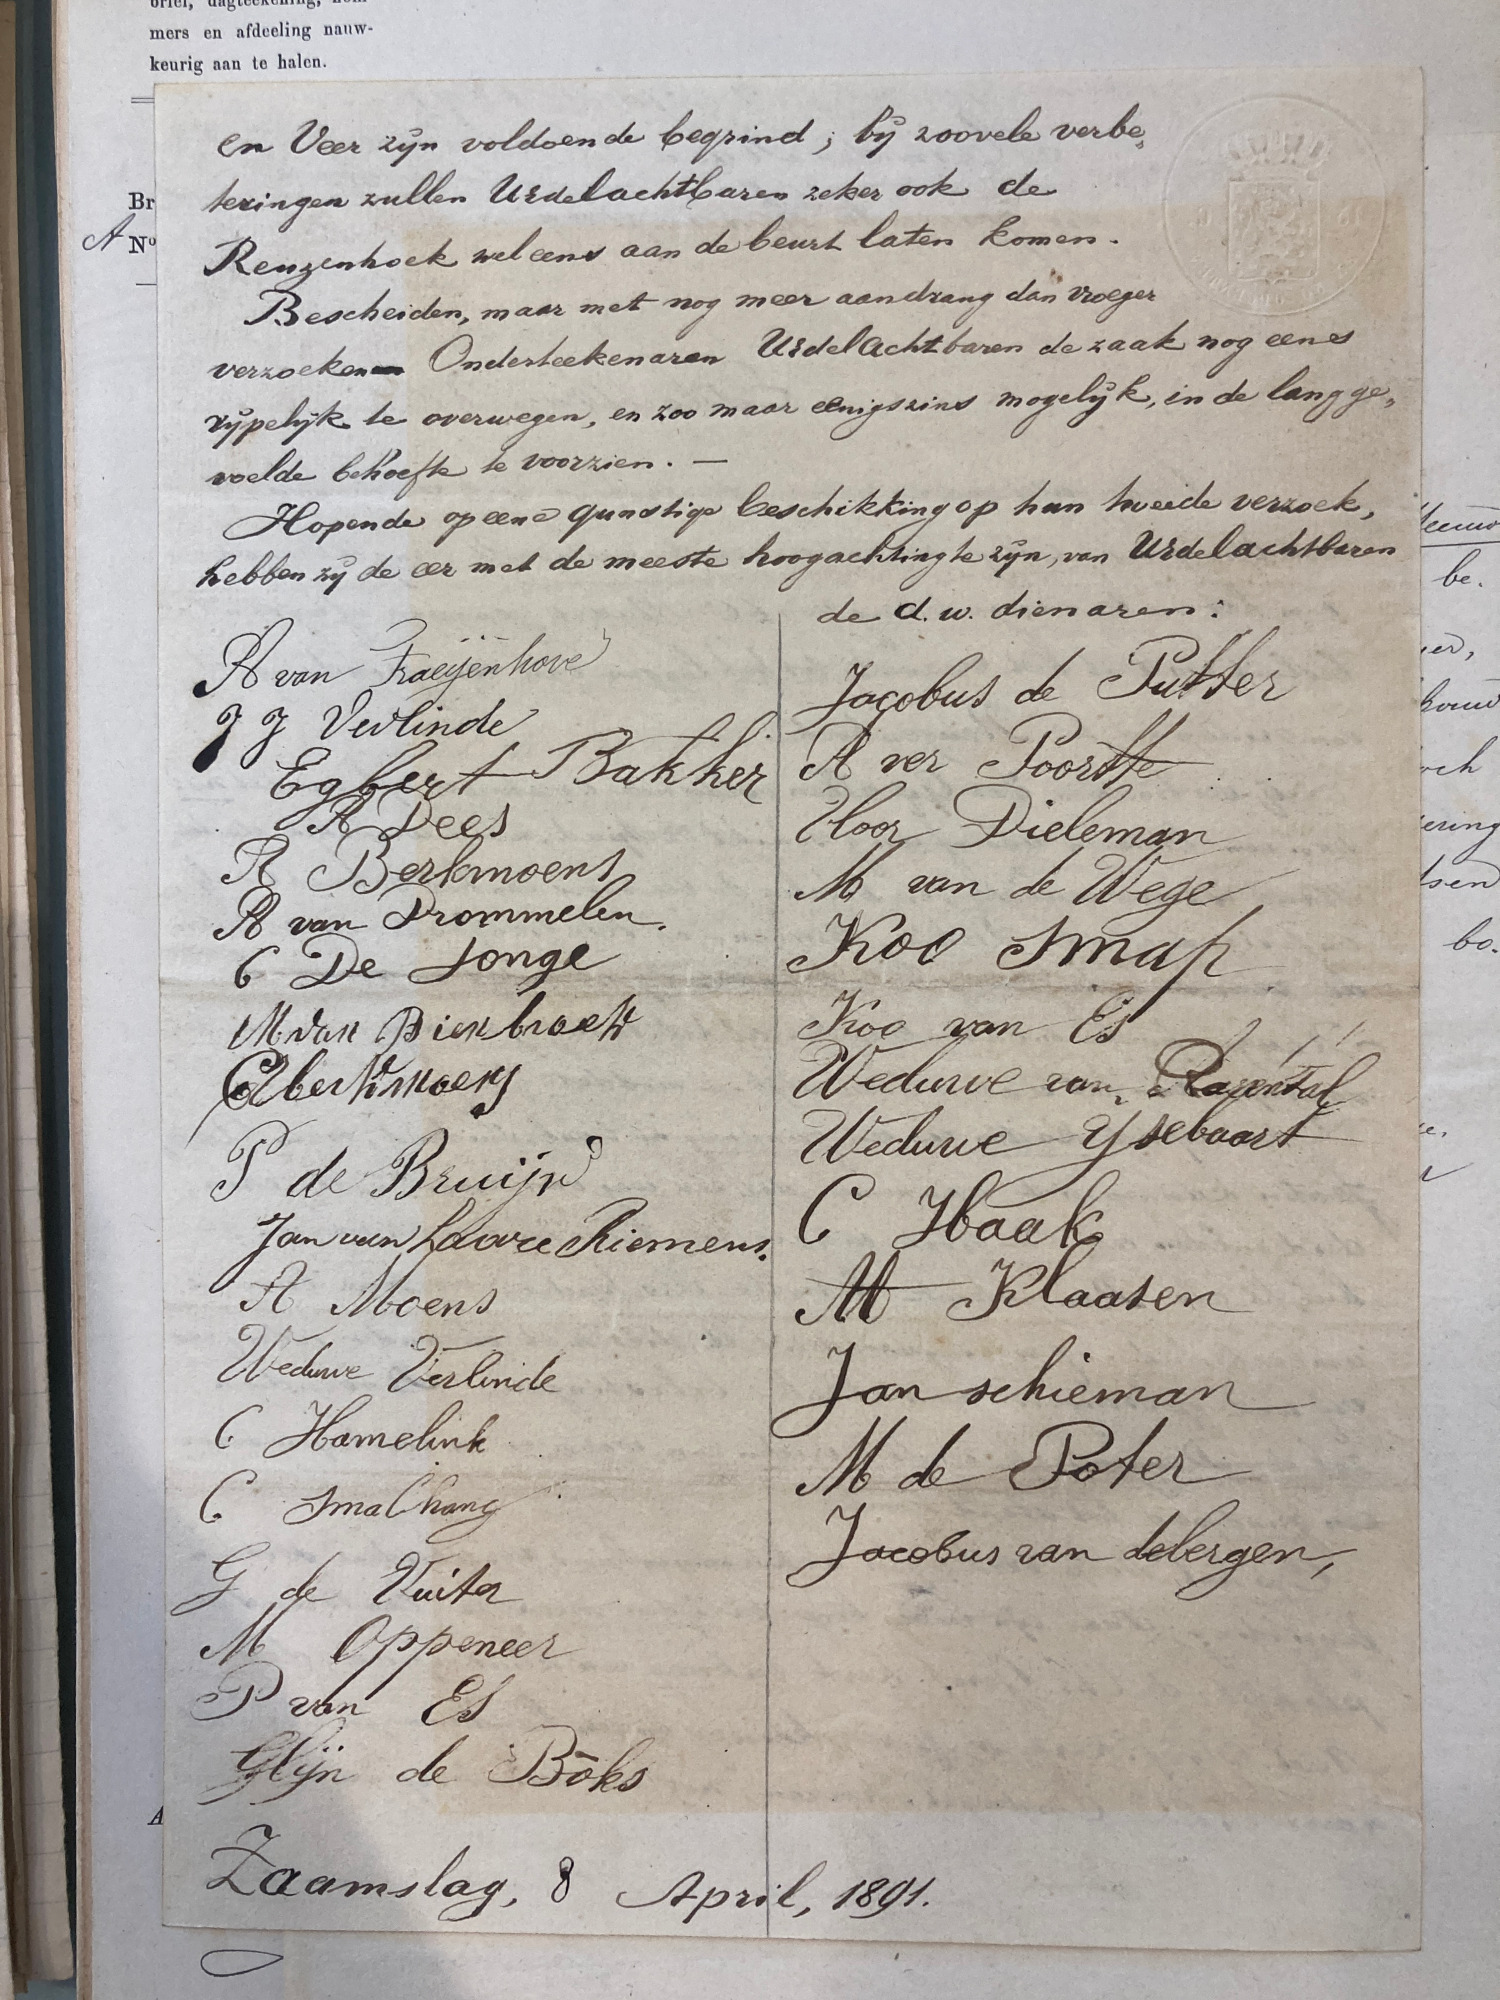 mers en afdeeling nauw-
keurig aan te halen.
Br
A No
en Veer zijn voldoende begrind; bij zoovele verbe„
teringen zullen UEdelachtbaren zeker ook de
Reuzenhoek wel eens aan de beurt laten komen.
Bescheiden, maar met nog meer aandrang dan vroeger
verzoeken Onderteekenaren UEdelachtbaren de zaak nog eens
rijpelijk te overwegen, en zoo maar eenigszins mogelijk, in de lang ge„
voelde behoefte te voorzien. —
Hopende op eene gunstige beschikking op hun tweede verzoek,
hebben zij de eer met de meeste hoogachting te zijn, van UEdelachtbaren
de d.w. dienaren:
A van Fraeijenhove
J J Verlinde
Egbert Bakker
A Dees
A Berkmoens
A van Drommelen.
C De Jonge
M van Dixhoorn
P de Bruijn
Jan van Laare Riemens.
A Moens
Weduwe Verlinde
C Hamelink
C Smalhang
G de Vuiter
M Oppeneer
P van Es
Glijn de Böks
Jacobus de Putter
A ver Poortte
Floor Dieleman
M van de Wege
Koo Smap
Koo van Es
Weduwe van Rozental
Weduwe Ysebaart
C Haak
M Klaasen
Jan schieman
M de Poter
Jacobus van debergen,
Zaamslag, 8 April, 1891.
be.
bo.